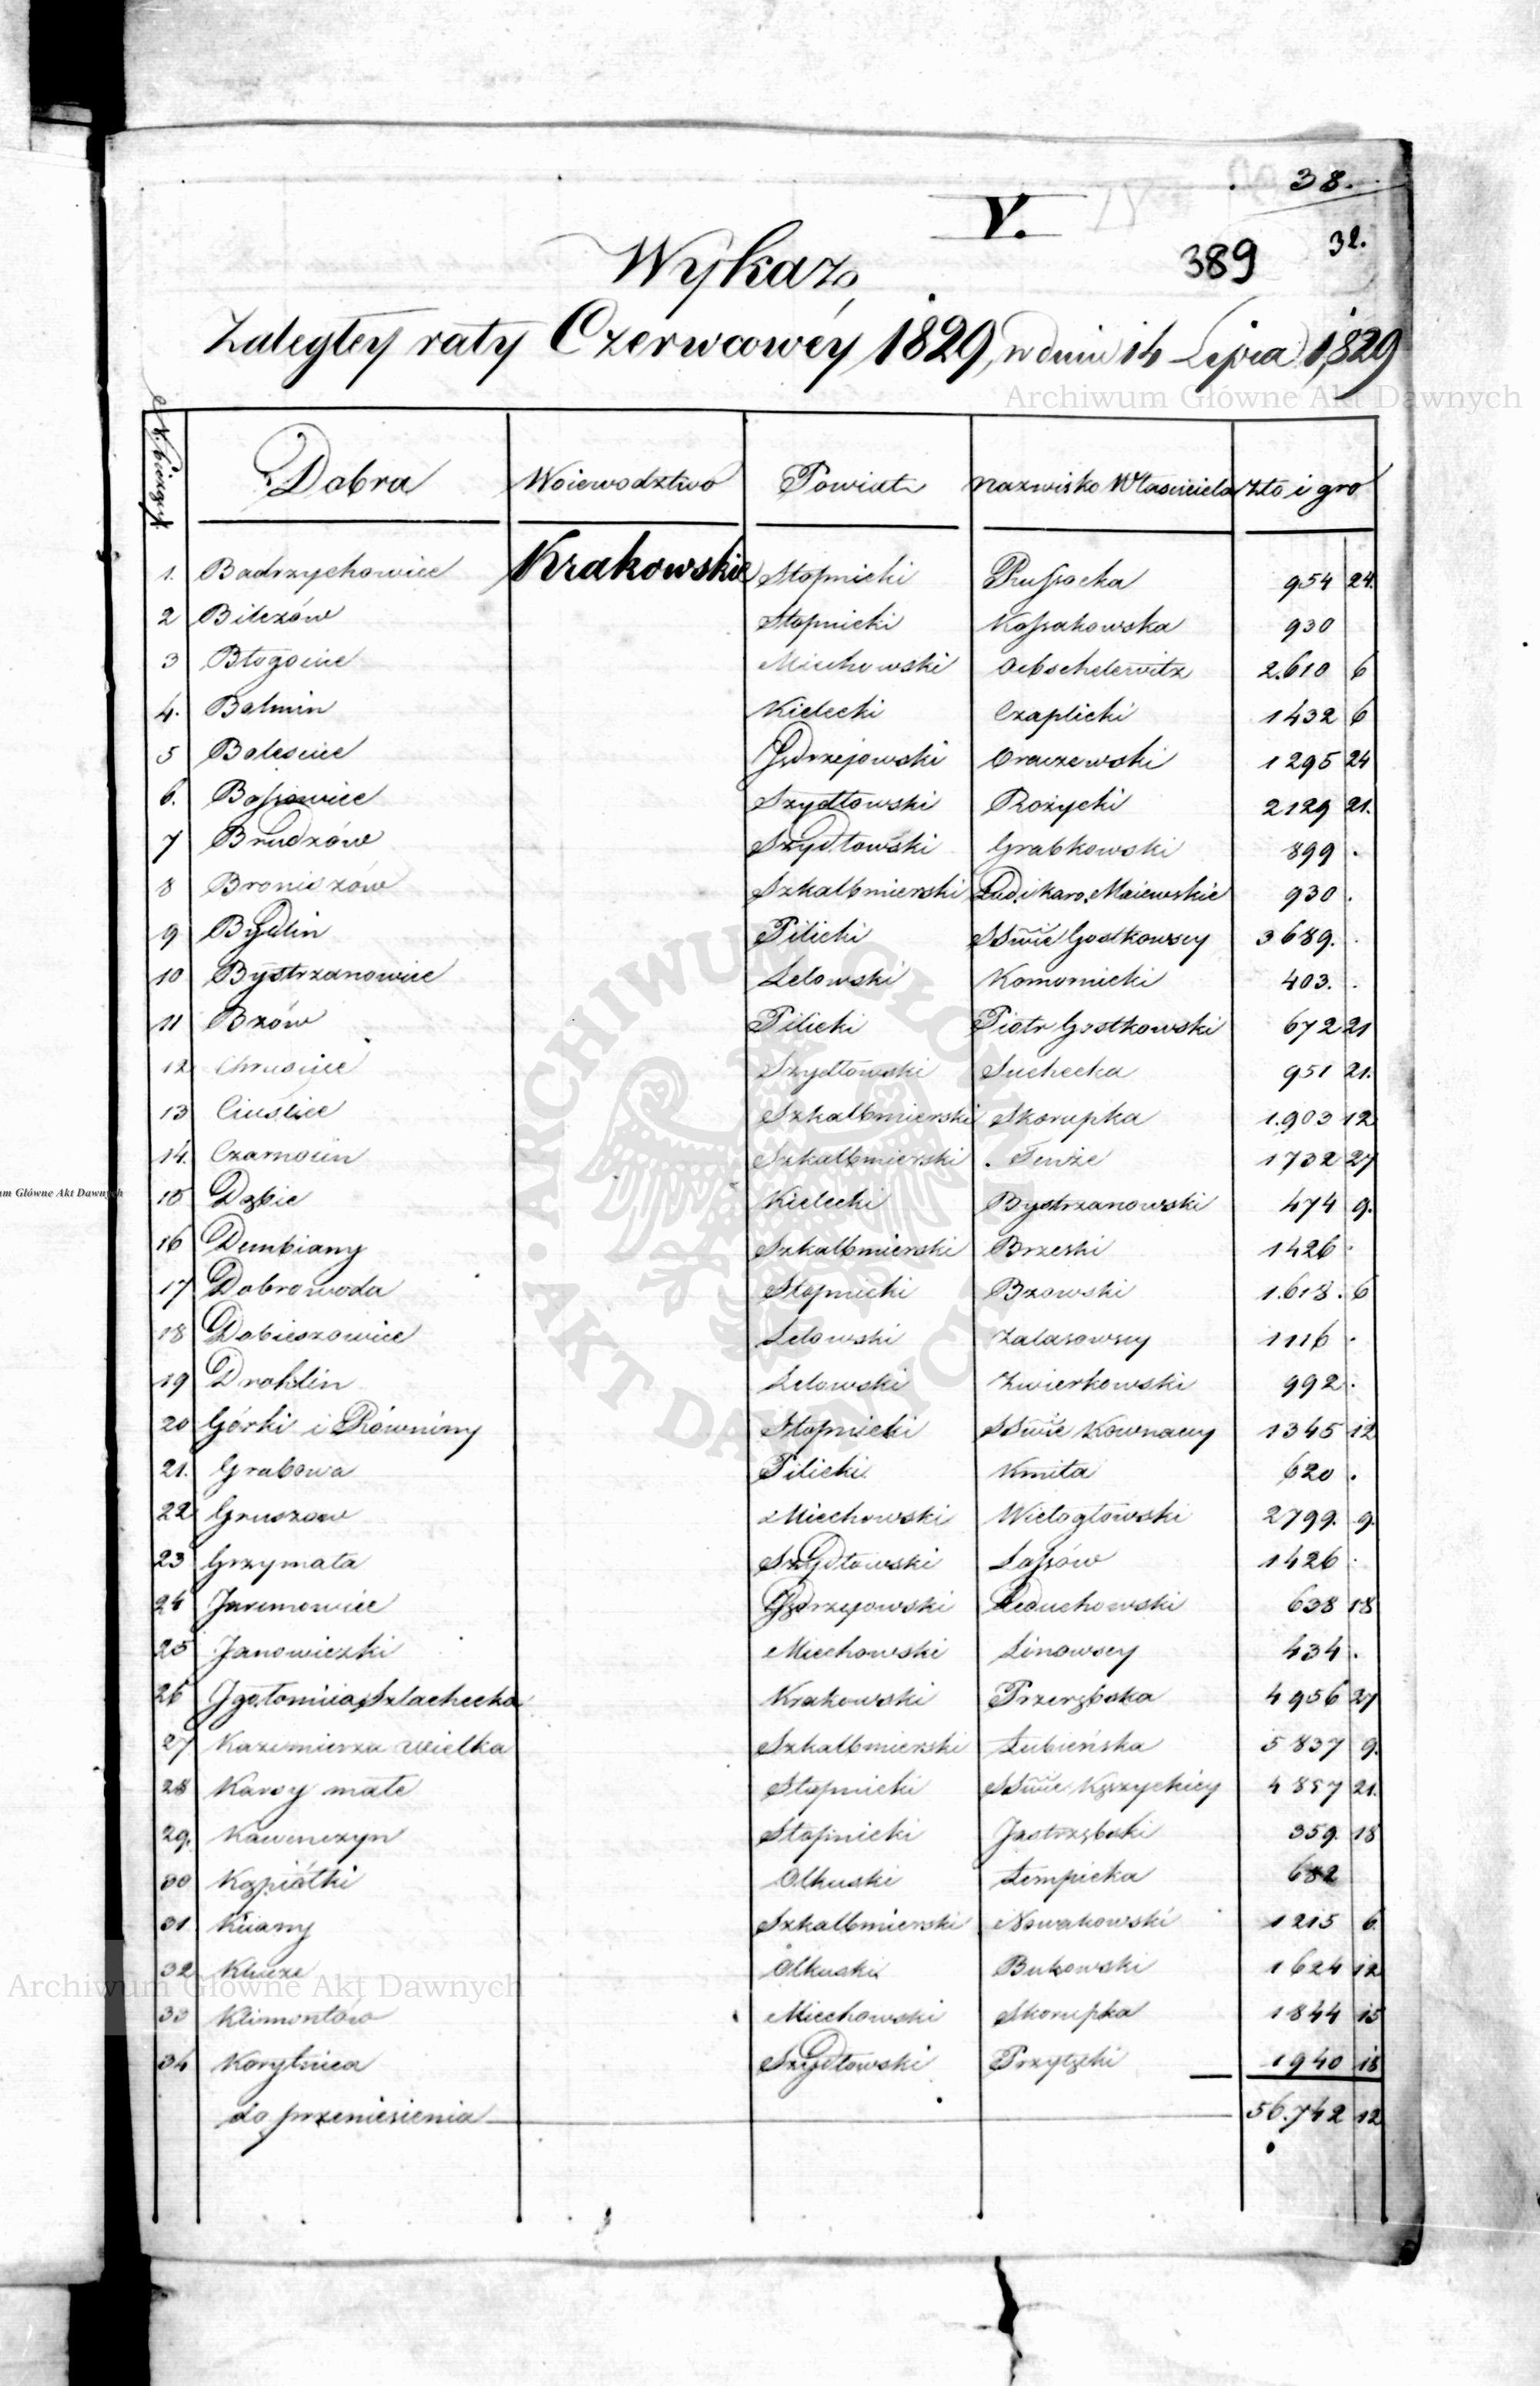 38.
V.
389
32.
Wykaz
Zaległey raty Czerwcowéy 1829, w dniu 14 Lipca 1829
Archiwum Główne Akt Dawnych
N. bieżący Dobra Woiewodztwo Powiat Nazwisko Właściciela Złp i gro
1. Badrzychowice Krakowskie Stopnicki Russocka 954 24.
2 Bilczów Stopnicki Kossakowska 930
3 Błogocice Miechowski Oebschelewitz 2.610 6
4. Balmin Kielecki Czaplicki 1432 6
5 Bolescice Jędrzejowski Oraczewski 1295 24
6. Bossowice Szydłowski Rożycki 2129 21.
7 Brudzów Szydłowski Grabkowski 899 .
8 Broniszów Szkalbmierski Lud. i Karo. Maiewskie 930 .
9 Bydlin Pilicki SSwie Gostkowscy 3689. .
10 Bystrzanowice Lelowski Komornicki 403. .
11 Bzów Pilicki Piotr Gostkowski 672 21
12 Chruscice Szydłowski Suchecka 951 21.
13 Ciuslice Szkalbmierski Skorupka 1.903 12
14. Czarnocin Szkalbmierski . Tenże 1732 27
15 Dębie Kielecki Bystrzanowski 474 9.
16 Dembiany Szkalbmierski Brzeski 1426 .
17 Dobrowoda Stopnicki Bzowski 1.618. 6
18 Dobieszowice Lelowski Zalasowscy 1116 .
19 Drohlin Lelowski Zwierkowski 992 .
20 Górki i Równiny Stopnicki SSwie Kownaccy 1345 12
21. Grabowa Pilicki Kmita 620 .
22 Gruszow Miechowski Wielogłowski 2799. 9.
23 Grzymała Szydłowski Lassów 1426 .
24 Jaremowice Jędrzejowski Leduchowski 638 18
25 Janowiczki Miechowski Linowscy 434 .
26 Jgołomiia Szlachecka Krakowski Przerębska 4956 27
27 Kazimierza wielka Szkalbmierski Łubieńska 5837 9.
28 Karsy małe Stopnicki SSwie Kęszyckiey 4857 21.
29. Kawenczyn Stopnicki Jastrzębski 359. 18
30 Kąpiółki Olkuski Łempicka 682
31 Kiiany Szkalbmierski Nowakowski 1215 6
32 Klucze Olkuski Bukowski 1624 12
33 Klimontów Miechowski Skorupka 1844 15
34 Korytnica Szydłowski Przyłęcki 1940 18
do przeniesienia 56.742 12
ARCHIWUM GŁÓWNE AKT DAWNYCH
um Główne Akt Dawnych
Archiwum Główne Akt Dawnych